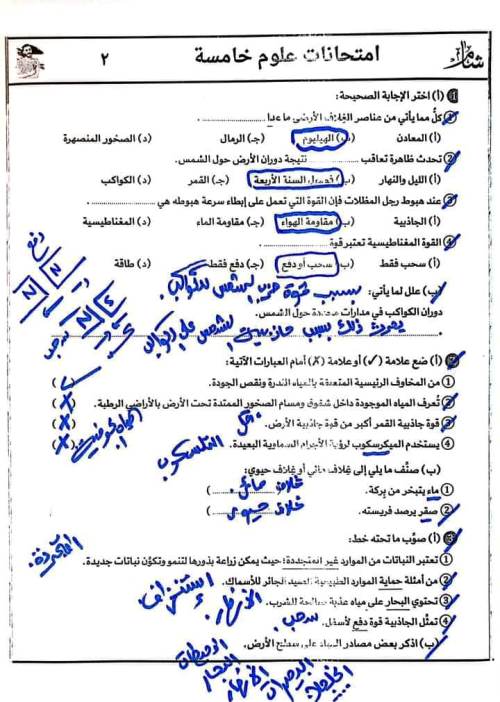 امتحانات علوم خامسة
٢
١ (أ) اختر الإجابة الصحيحة:
١ كلٌّ مما يأتي من عناصر الغلاف الأرضي ما عدا ............
(أ) المعادن (ب) الهيليوم (جـ) الرمال (د) الصخور المنصهرة
٢ تحدث ظاهرة تعاقب ............ نتيجة دوران الأرض حول الشمس.
(أ) الليل والنهار (ب) فصول السنة الأربعة (جـ) القمر (د) الكواكب
٣ عند هبوط رجل المظلات فإن القوة التي تعمل على إبطاء سرعة هبوطه هي ............
(أ) الجاذبية (ب) مقاومة الهواء (جـ) مقاومة الماء (د) المغناطيسية
٤ القوة المغناطيسية تعتبر قوة ............
(أ) سحب فقط (ب) سحب أو دفع (جـ) دفع فقط (د) طاقة
دفع
N N
N S
سحب
(ب) علل لما يأتي:
بسبب قوة جذب الشمس للكواكب.
دوران الكواكب في مدارات محددة حول الشمس.
يحدث ذلك بسبب جاذبية الشمس على الكواكب
٢ (أ) ضع علامة (✓) أو علامة (✗) أمام العبارات الآتية:
١ من المخاوف الرئيسية المتعلقة بالمياه الندرة ونقص الجودة. (✓)
٢ تُعرف المياه الموجودة داخل شقوق ومسام الصخور الممتدة تحت الأرض بالأراضي الرطبة. (✗)
المياه الجوفية
٣ قوة جاذبية القمر أكبر من قوة جاذبية الأرض. (✗)
أقل
٤ يستخدم الميكرسكوب لرؤية الأجرام السماوية البعيدة. (✗)
التلسكوب
(ب) صنّف ما يلي إلى غلاف مائي أو غلاف حيوي:
١ ماء يتبخر من بركة. (غلاف مائي)
٢ صقر يرصد فريسته. (غلاف حيوي)
٣ (أ) صوّب ما تحته خط:
المتجددة.
١ تعتبر النباتات من الموارد غير المتجددة؛ حيث يمكن زراعة بذورها لتنمو وتكوّن نباتات جديدة.
٢ من أمثلة حماية الموارد الطبيعية الصيد الجائر للأسماك.
استنزاف
٣ تحتوي البحار على مياه عذبة صالحة للشرب.
الأنهار
٤ تمثّل الجاذبية قوة دفع لأسفل.
سحب
(ب) اذكر بعض مصادر المياه على سطح الأرض.
المحيطات
البحار
الأنهار
البحيرات
الخلجان